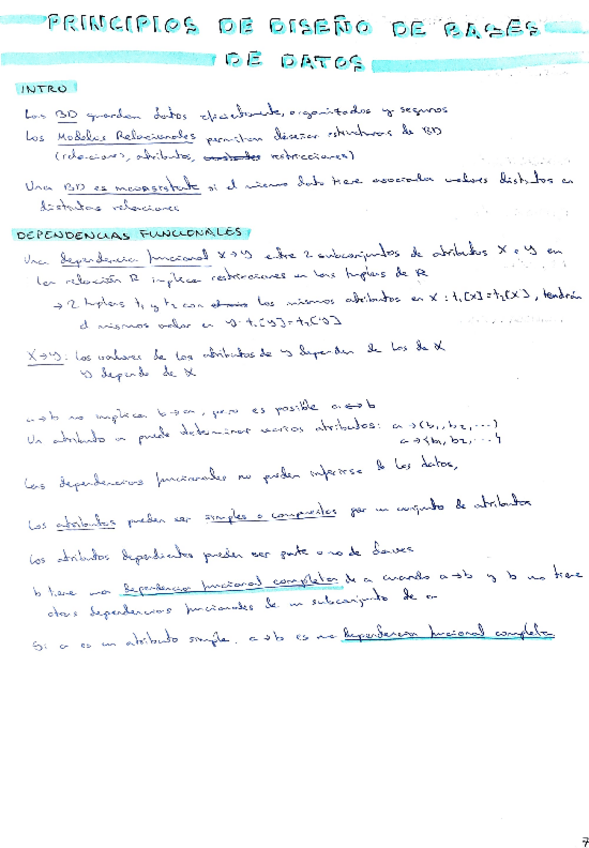 PRINCIPIOS DE DISEÑO DE BASES
DE DATOS
INTRO
Las BD guardan datos eficientemente, organizados y seguros
Los Modelos Relacionales permiten diseñar estructuras de BD
(relaciones, atributos, restricciones)
Una BD es inconsistente si el mismo dato tiene asociados valores distintos en
distintas relaciones
DEPENDENCIAS FUNCIONALES
Una dependencia funcional X→Y entre 2 subconjuntos de atributos X e Y en
la relación R implica restricciones en las tuplas de R
→ 2 tuplas t1 y t2 con los mismos atributos en X: t1[X]=t2[X], tendrán
el mismo valor en Y: t1[Y]=t2[Y]
X→Y: los valores de los atributos de Y dependen de los de X
Y depende de X
a→b no implica b→a, pero es posible a↔b
Un atributo a puede determinar varios atributos: a→(b1, b2, ...)
a→{b1, b2, ...}
Las dependencias funcionales no pueden inferirse los datos,
Los atributos pueden ser simples o compuestos por un conjunto de atributos
Los atributos dependientes pueden ser parte o no de claves
b tiene una dependencia funcional completa de a cuando a→b y b no tiene
otras dependencias funcionales de un subconjunto de a
Si a es un atributo simple, a→b es una dependencia funcional completa
7